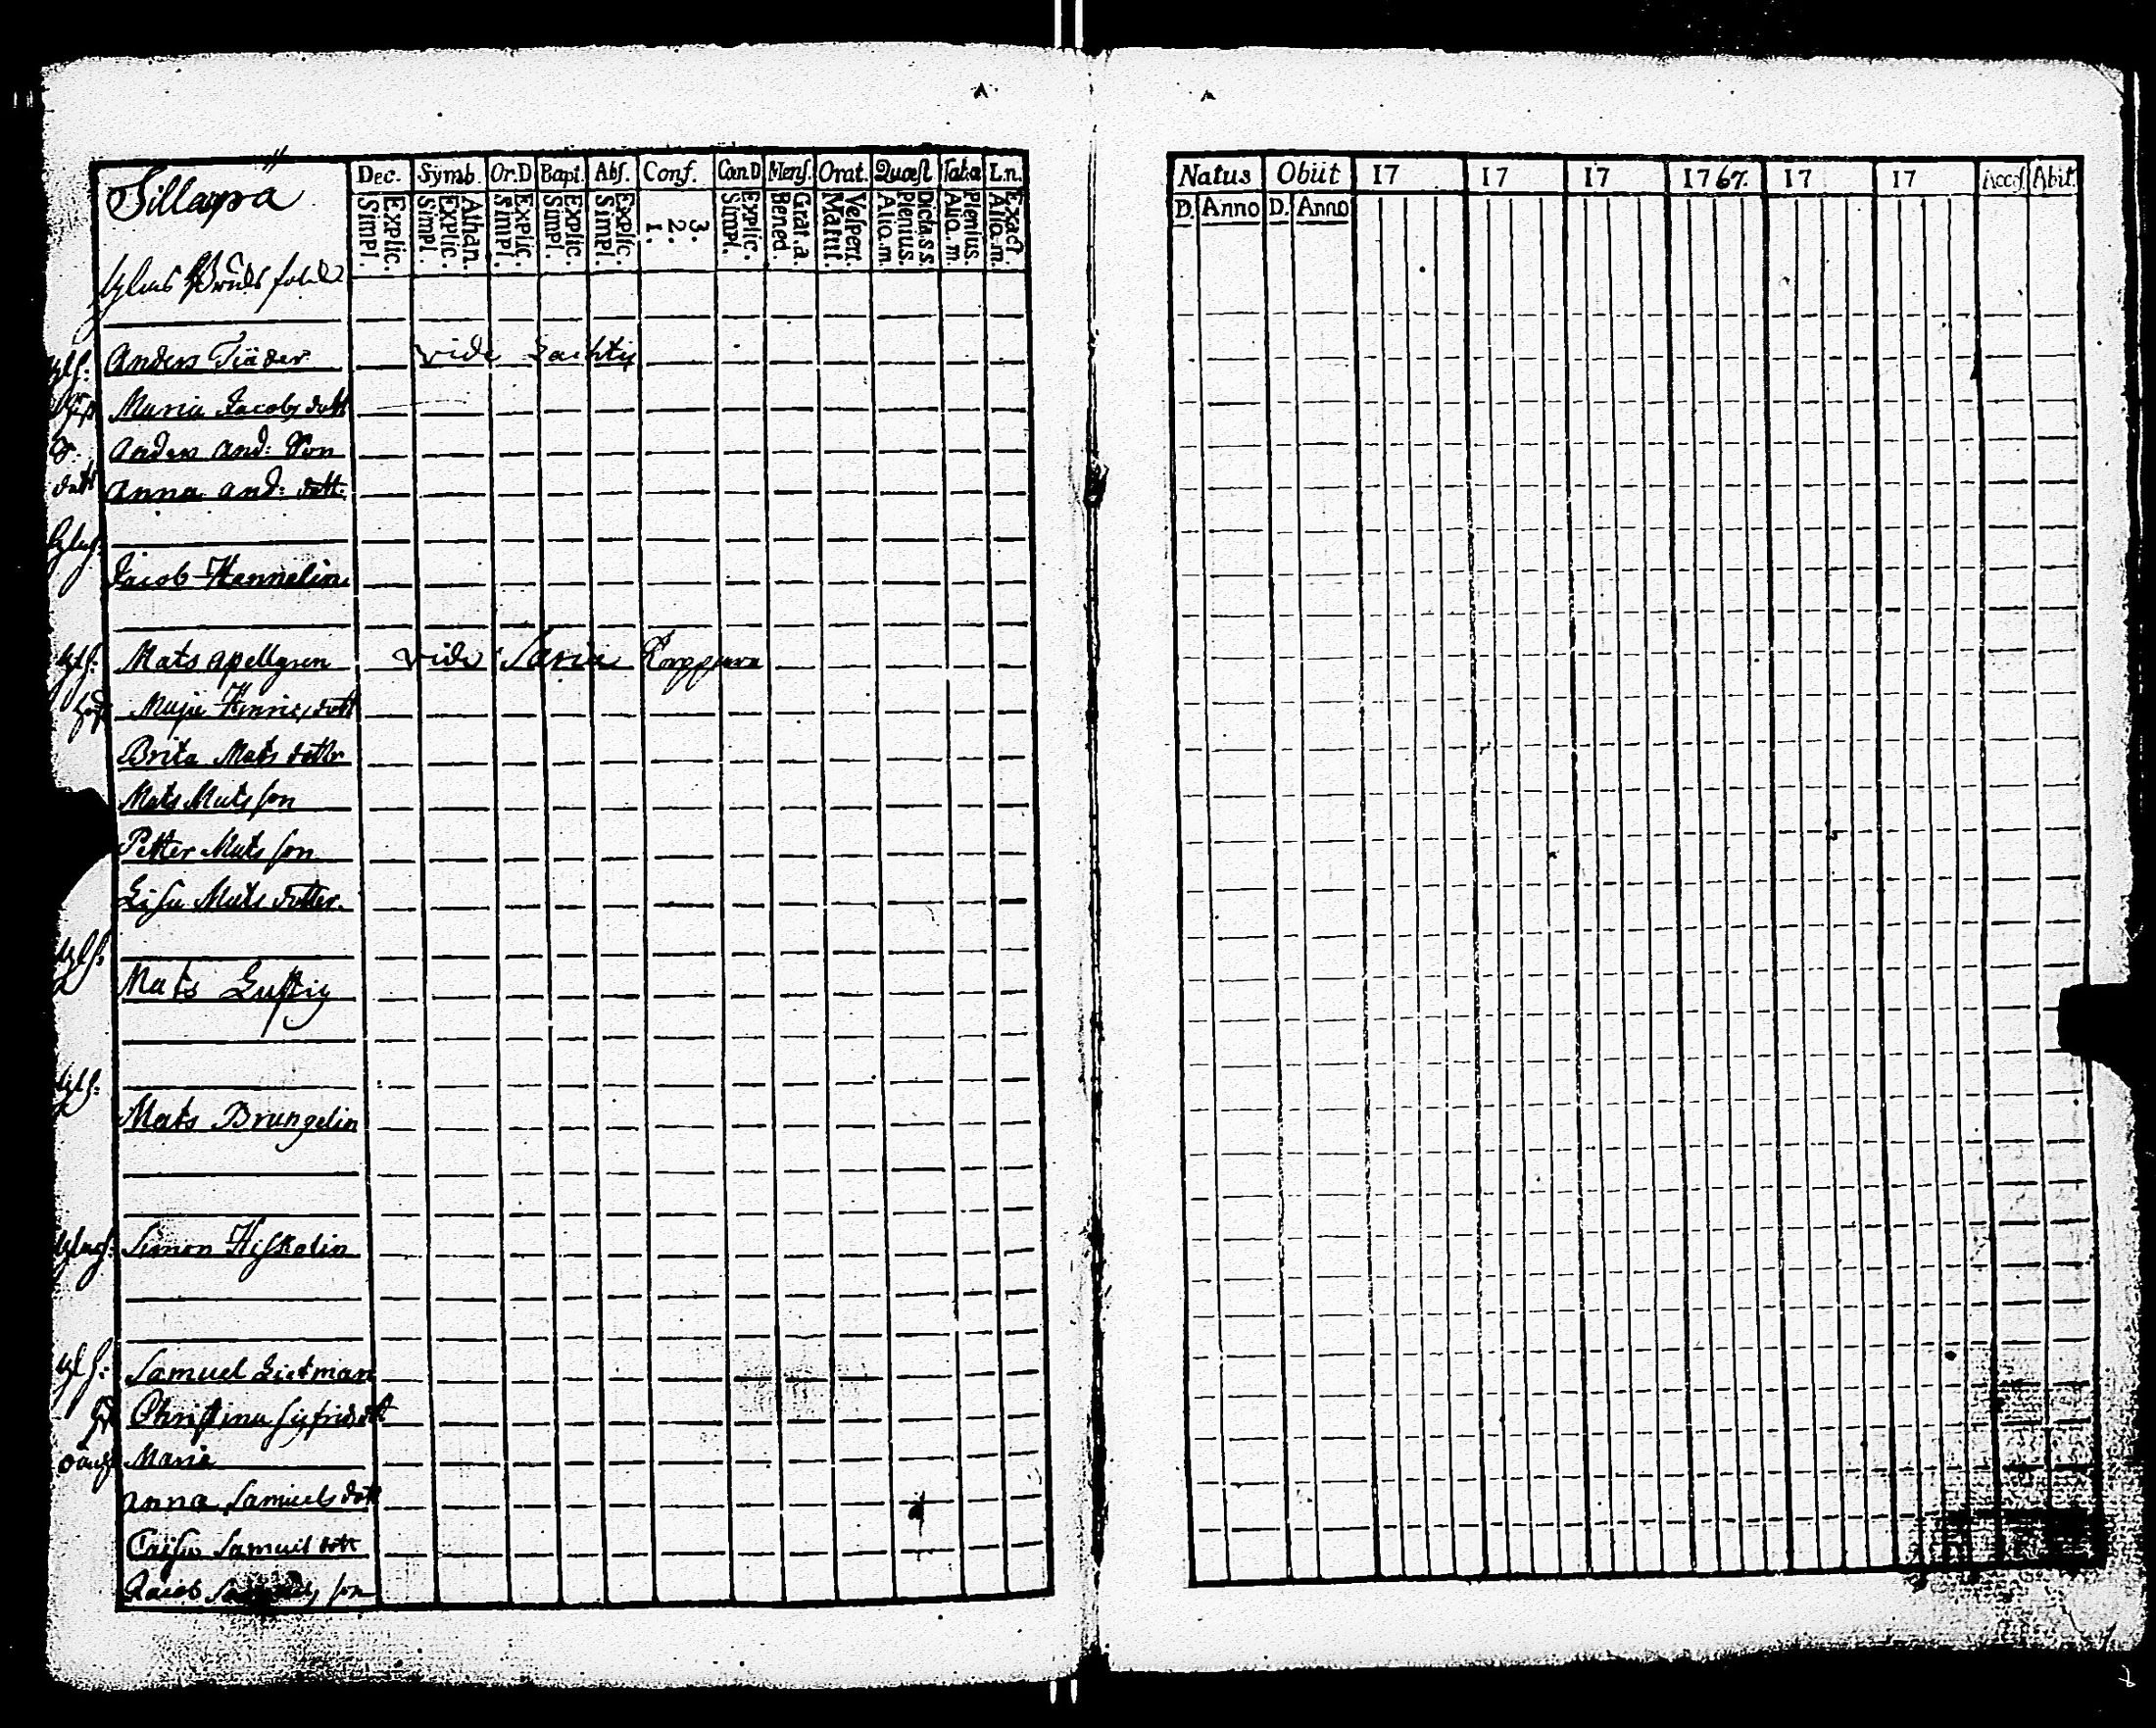 Sillanpä
Dec. Symb. Or.D Bapt. Abs. Conf. Can.D Mens. Orat. Quæst Tab.œ L.n.
Explic. Simpl. Athan. Explic. Simpl. Explic. Simpl. Explic. Simpl. Explic. Simpl. 3. 2. 1. Explic. Simpl. Grat.a. Bened. Vespert. Matut. Dicta.s.s. Plenius. Alio.m. Plenius Alio.m Exact. Alio.m.
Anders Fiäder vide
Maria Jacobs dott
Anders And: Son
dott Anna And: dott.
Jacob Hennelin
Mats Apellgren vide
Maja Henrics dott
Brita Mats dotter
Mats Mats son
Petter Mats son
Lisa Mats dotter.
Mats Lustig
Mats Brungelin
Simon Hiskelin
Samuel Lietman
Christina Sigfrids dt
Maria
Anna Samuels dott
Cajsa Samuels dott
Jacob son
Natus Obiit 17 17 17 1767. 17 17 Acces. Abit.
D. Anno D. Anno